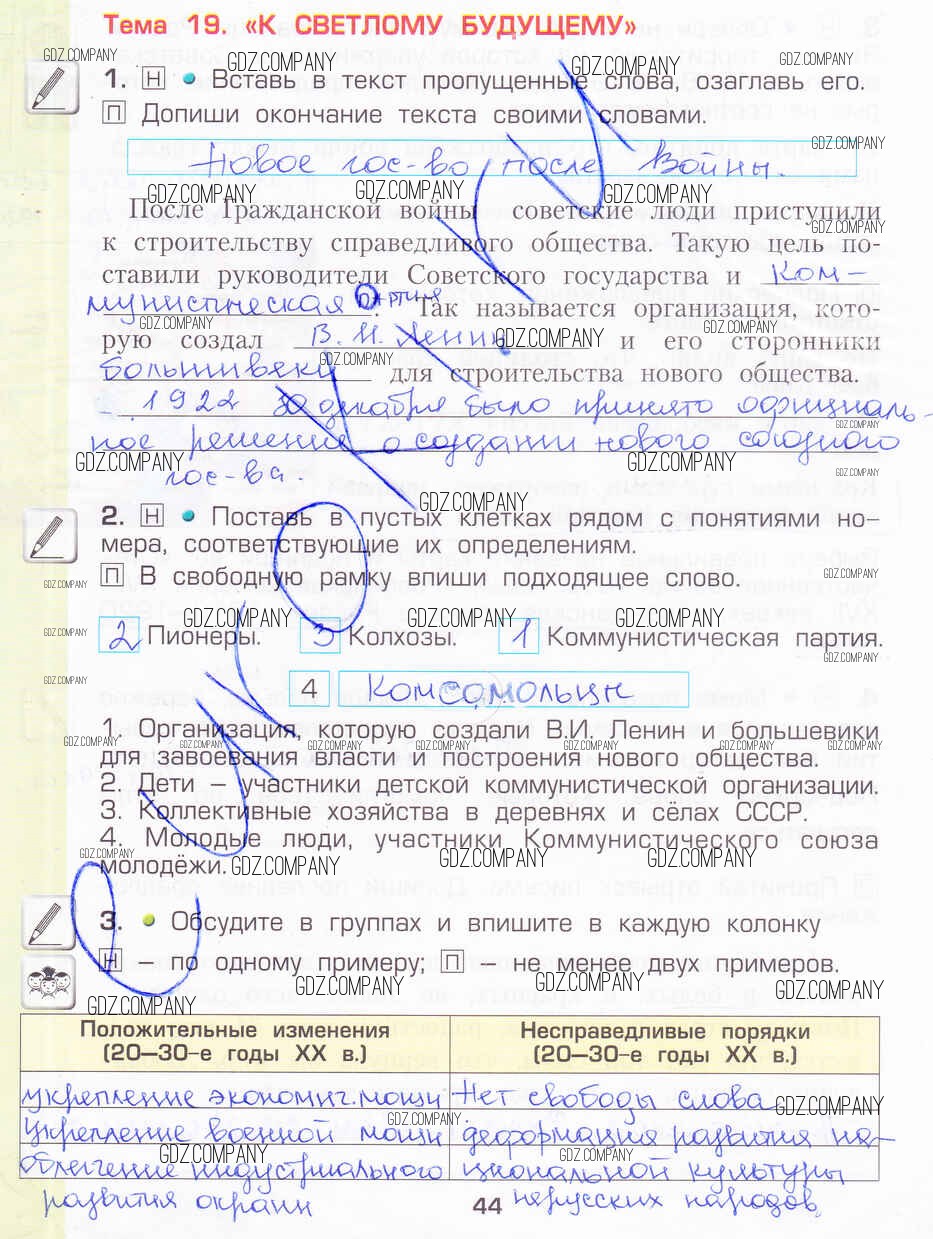 Тема 19. «К СВЕТЛОМУ БУДУЩЕМУ»
1. Н • Вставь в текст пропущенные слова, озаглавь его.
П Допиши окончание текста своими словами.
Новое гос-во после войны.
После Гражданской войны советские люди приступили
к строительству справедливого общества. Такую цель по-
ставили руководители Советского государства и Ком-
мунистическая партия. Так называется организация, кото-
рую создал В.И. Ленин и его сторонники
большевики для строительства нового общества.
1922 30 декабря было принято официаль-
ное решение о создании нового союзного
гос-ва.
2. Н • Поставь в пустых клетках рядом с понятиями но-
мера, соответствующие их определениям.
П В свободную рамку впиши подходящее слово.
2 Пионеры. 3 Колхозы. 1 Коммунистическая партия.
4 Комсомольцы
1. Организация, которую создали В.И. Ленин и большевики
для завоевания власти и построения нового общества.
2. Дети – участники детской коммунистической организации.
3. Коллективные хозяйства в деревнях и сёлах СССР.
4. Молодые люди, участники Коммунистического союза
молодёжи.
3. • Обсудите в группах и впишите в каждую колонку
Н – по одному примеру; П – не менее двух примеров.
Положительные изменения Несправедливые порядки
(20—30-е годы XX в.) (20—30-е годы XX в.)
укрепление эконом​ич. мощи Нет свободы слова
укрепление военной мощи деформация развития на-
облегчение индустриального циональной культуры
развития окраин нерусских народов
44
GDZ.COMPANY